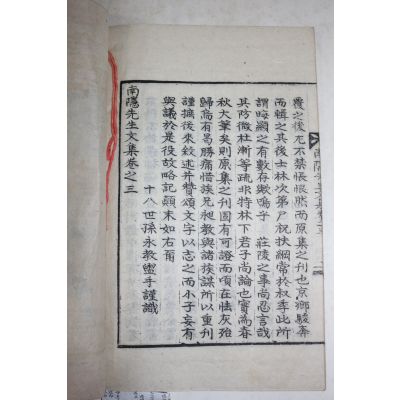 覆之後尤不禁悵恨然而原集之刊也京鄉駿奔
而輯之其後士林次第尸祝扶綱常於叔季此所
謂晦顯之有數存歟嗚乎 莊陵之事尚忍言哉
其防微杜漸等疏非特林下君子尚論也實爲春
秋大筆矣則原集之刊固有可證而頃在怯灰殆
歸烏有曷勝痛惜族兄昶教與諸族謀所以重刊
謹摭後來敍述并贊頌文字以志之而小子妄有
與議於是役故略記顚末如右爾
十八世孫永教盥手謹識
南隱先生文集卷之三